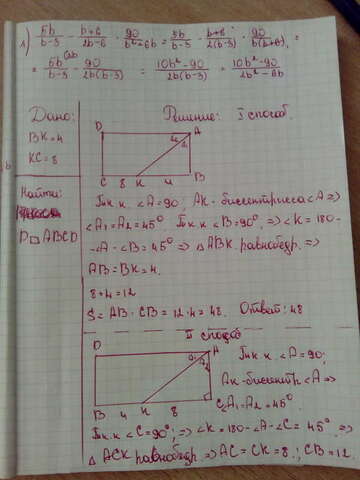 1) 5b/(b-3) - (b+6)/(2b-6) · 90/(b²+6b) = 5b/(b-3) - (b+6)/(2(b-3)) · 90/(b(b+6)) =
= 5b/(b-3) - 90/(2b(b-3)) = (10b²-90)/(2b(b-3)) = (10b²-90)/(2b²-6b)
Дано:
BK=4
KC=8
Найти:
P▭ABCD
Решение: I способ.
D A
2 1
C 8 K 4 B
Т.к. ∠A=90, AK-биссектриса ∠A ⇒
∠A₁=A₂=45°. Т.к. ∠B=90°, ⇒ ∠K=180-
-∠A-∠B=45° ⇒ △ABK равнобедр. ⇒
AB=BK=4.
8+4=12
S=AB·CB=12·4=48. Ответ: 48
II способ
D A
1 2
B 4 K 8 C
Т.к. ∠A=90;
AK-биссектр ∠A ⇒
∠A₁=A₂=45°.
Т.к. ∠C=90°; ⇒ ∠K=180-∠A-∠C=45° ⇒
△ACK равнобедр. ⇒ AC=CK=8.; CB=12.